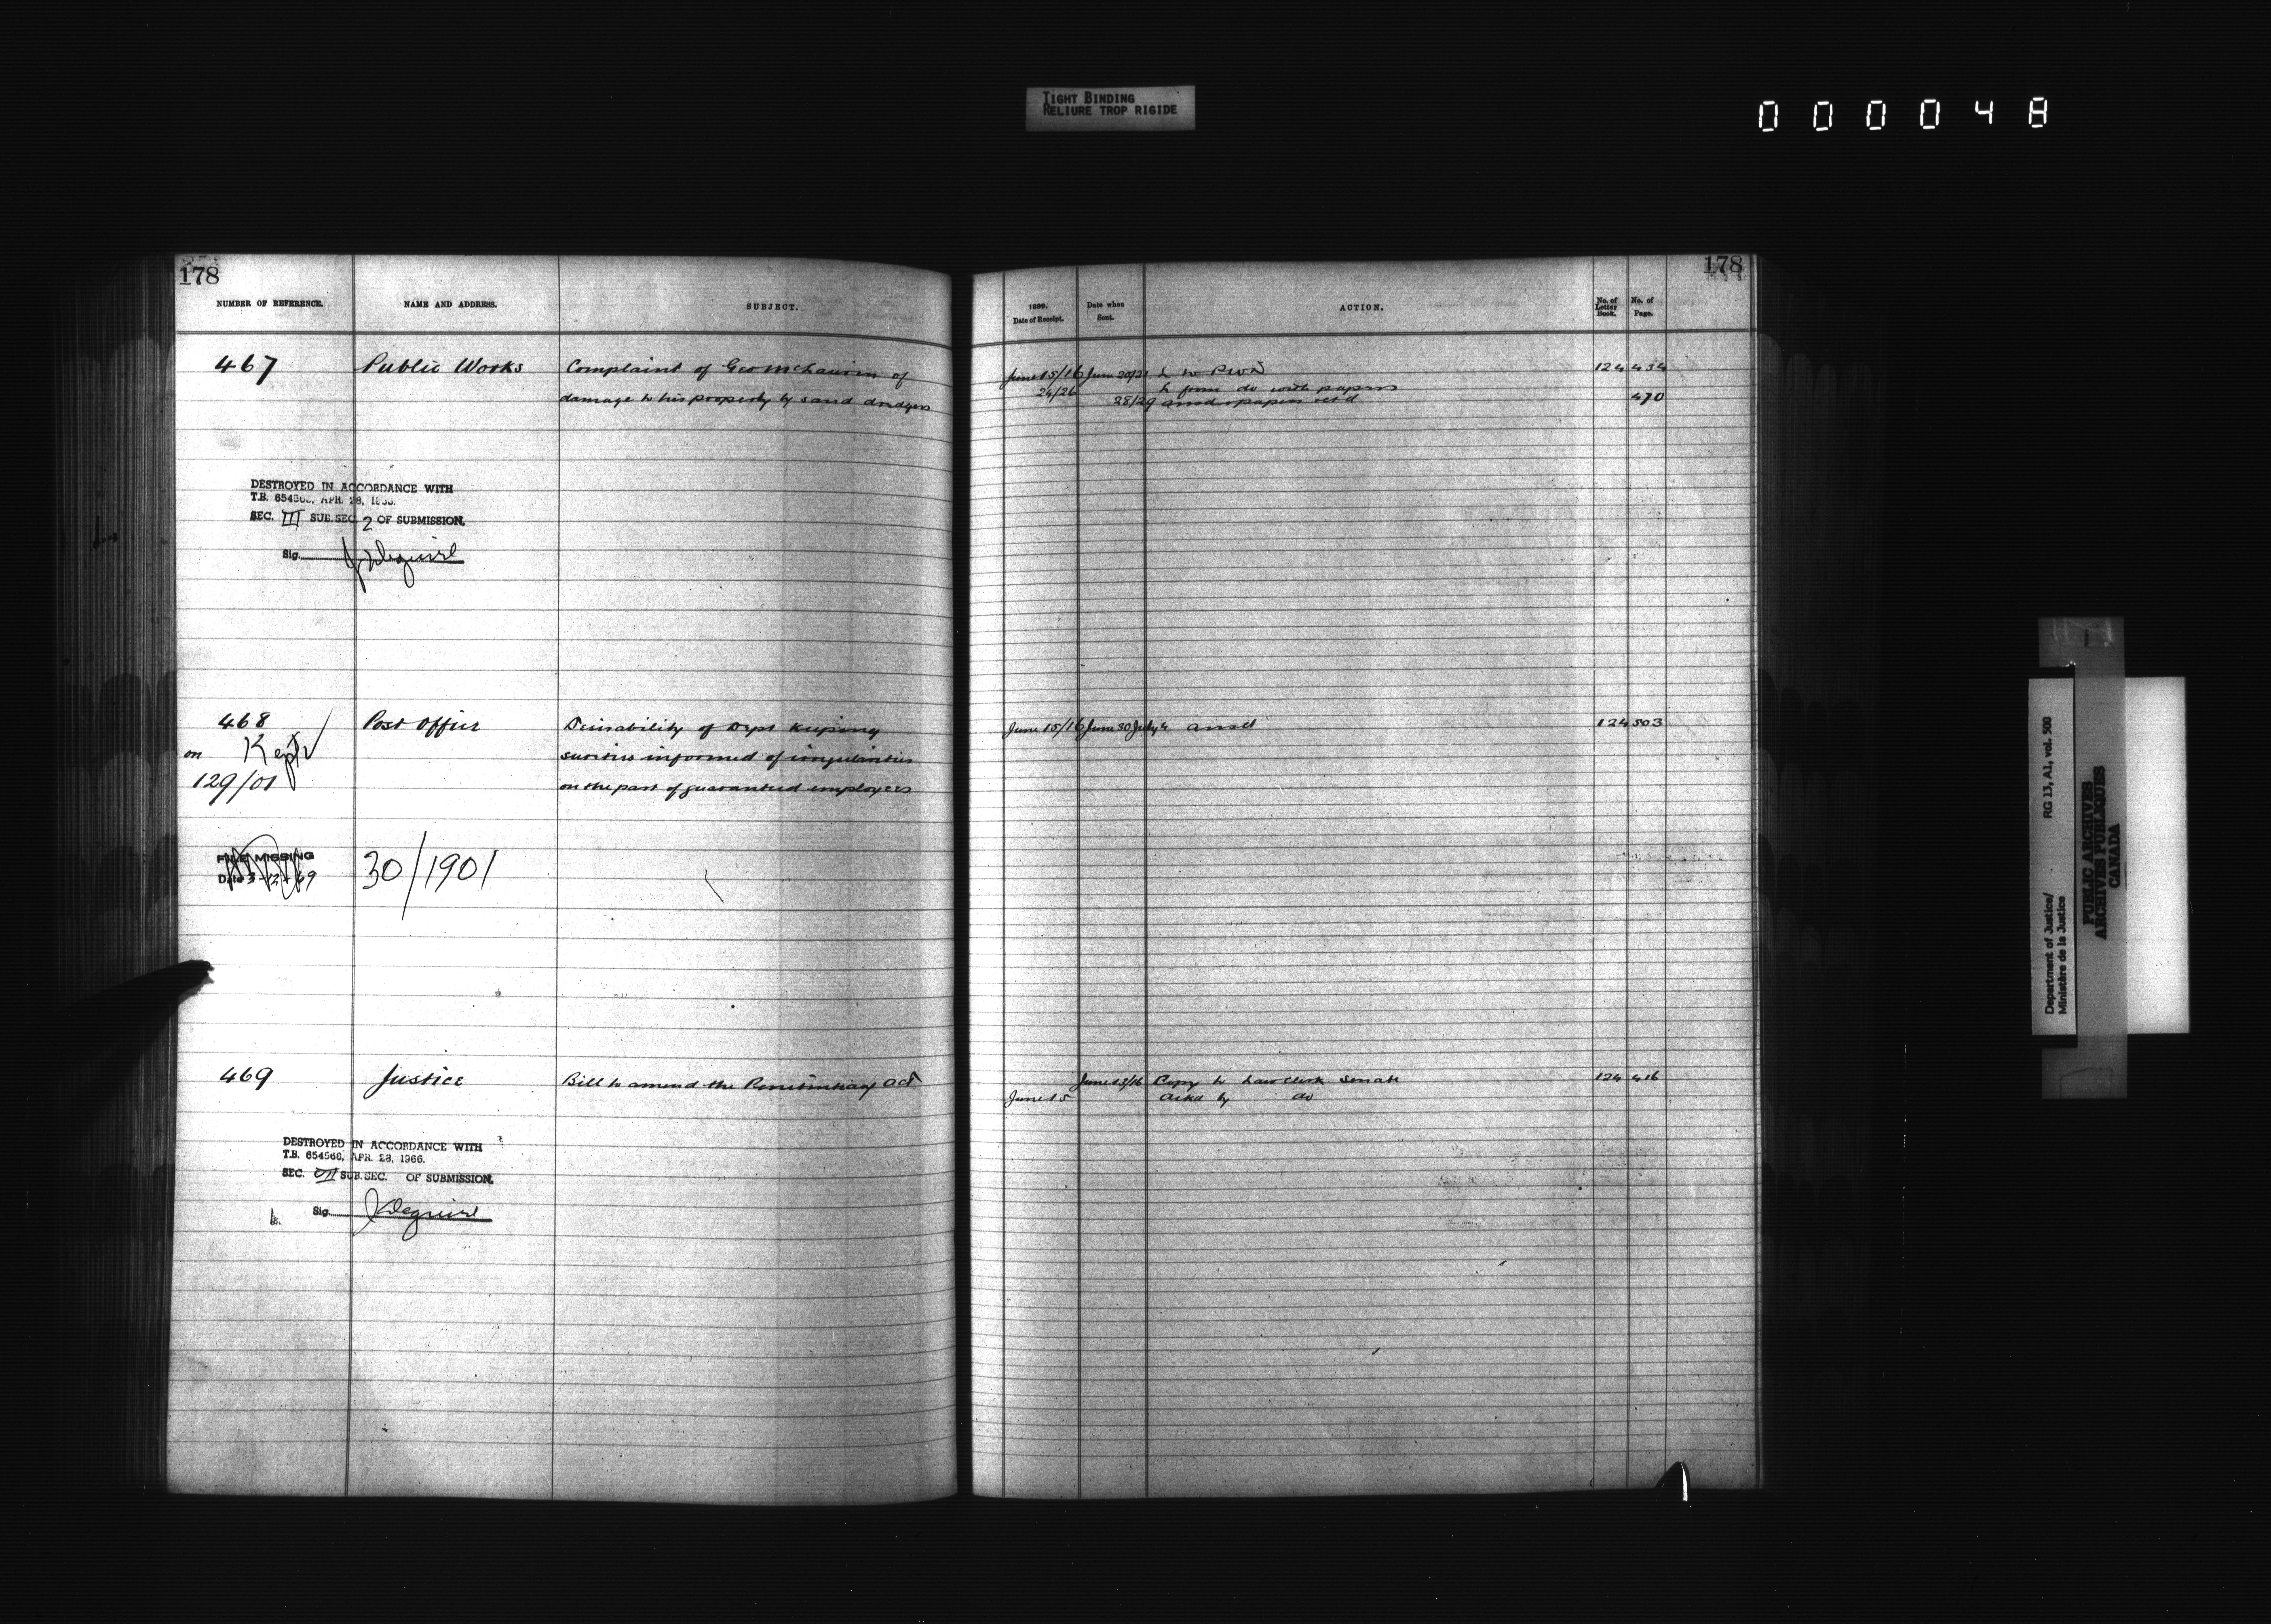 TIGHT BINDING
RELIURE TROP RIGIDE
000048
178
NUMBER OF REFERENCE.
NAME AND ADDRESS.
SUBJECT.
467
Public Works
Complaint of Geo McLaurin of
damage to his property by sand dredgers
DESTROYED IN ACCORDANCE WITH
T.B. 6545 APR. 28,
SEC. III SUB.SEC. 2 OF SUBMISSION.
Sig. J Deguire
468
Post Office
Desirability of Dept keeping
on Kept
sureties informed of irregularities
129/01
on the part of guaranteed employees
FILE MISSING
Date 3-12-69
30/1901
469
Justice
Bill to amend the Penitentiary Act
DESTROYED IN ACCORDANCE WITH
T.B. 654566, APR. 28, 1966.
SEC. VII SUB.SEC. OF SUBMISSION.
Sig. J Deguire
178
1899.
Date of Receipt.
Date when
Sent.
ACTION.
No. of
Letter
Book.
No. of
Page.
June 15/16 June 20/21 L to PWD 124 434
24/26 L from do with papers
28/29 ansd & papers retd 470
June 15/16 June 30 July 4 ansd 124 503
June 15/16 Copy to Law Clerk Senate 124 416
June 15 Ackd by do
Department of Justice/
Ministère de la Justice
RG 13, A1, vol. 500
PUBLIC ARCHIVES
ARCHIVES PUBLIQUES
CANADA